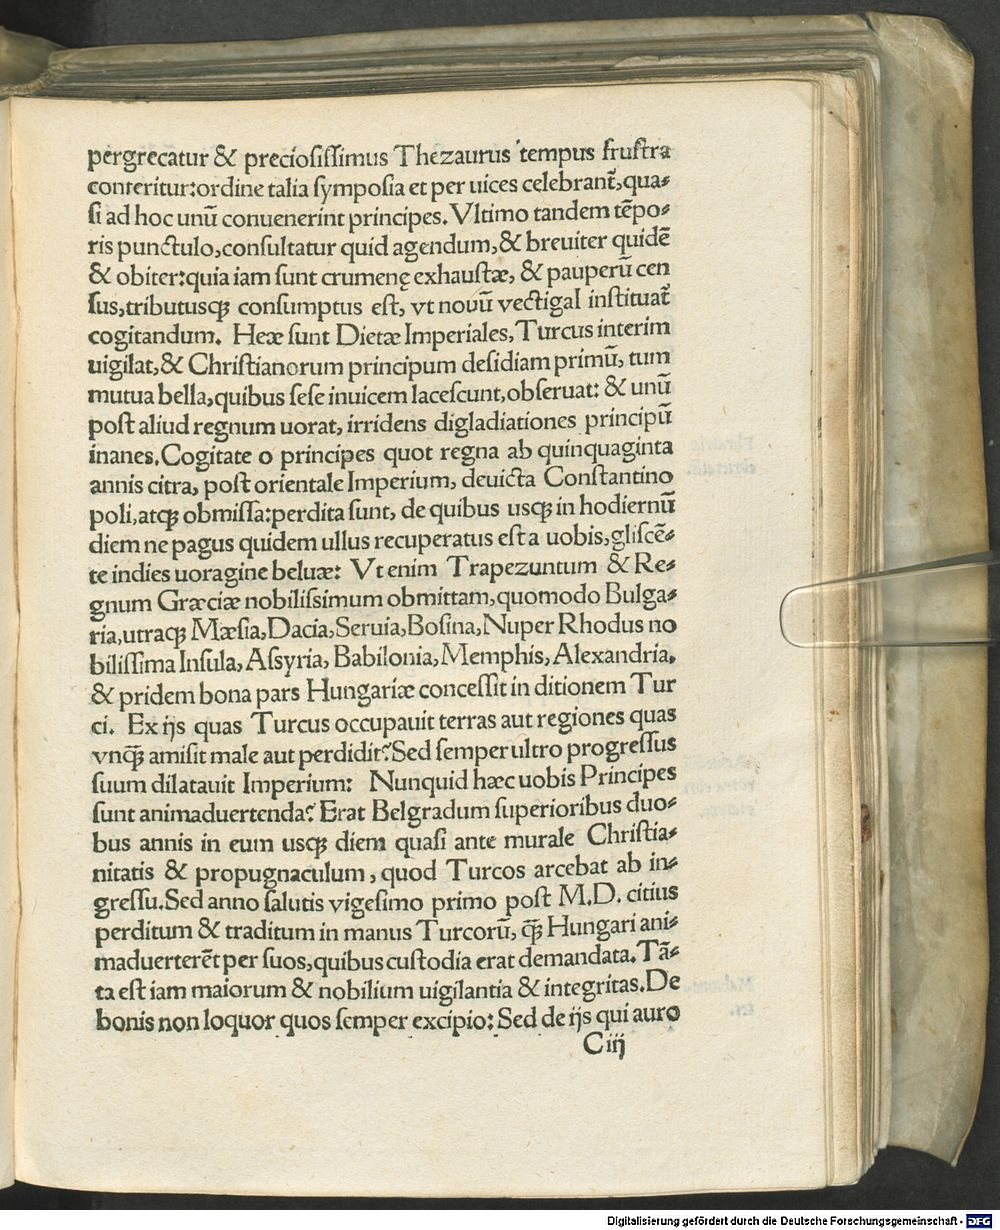 pergrecatur & preciosissimus Thezaurus tempus frustra
conteritur:ordine talia symposia et per uices celebrant̃,qua⸗
si ad hoc unū conuenerint principes.Vltimo tandem tēpo⸗
ris punctulo,consultatur quid agendum,& breuiter quidē
& obiter:quia iam sunt crumenę exhaustæ, & pauperū cen
sus,tributusqꝫ consumptus est, vt nouū vectigal instituat̃
cogitandum. Heæ sunt Dietæ Imperiales,Turcus interim
uigilat,& Christianorum principum desidiam primū, tum
mutua bella,quibus sese inuicem lacescunt,obseruat: & unū
post aliud regnum uorat, irridens digladiationes principū
inanes.Cogitate o principes quot regna ab quinquaginta
annis citra, post orientale Imperium, deuicta Constantino
poli,atqꝫ obmissa:perdita sunt, de quibus usqꝫ in hodiernū
diem ne pagus quidem ullus recuperatus est a uobis,gliscē⸗
te indies uoragine beluæ: Vt enim Trapezuntum & Re⸗
gnum Græciæ nobilissimum obmittam,quomodo Bulga⸗
ria,utraqꝫ Mæsia,Dacia,Seruia,Bosina,Nuper Rhodus no
bilissima Insula,Assyria, Babilonia,Memphis,Alexandria.
& pridem bona pars Hungariæ concessit in ditionem Tur
ci. Ex ijs quas Turcus occupauit terras aut regiones quas
vnqꝫ̄ amisit male aut perdidit?Sed semper ultro progressus
suum dilatauit Imperium: Nunquid hæc uobis Principes
sunt animaduertenda? Erat Belgradum superioribus duo⸗
bus annis in eum usqꝫ diem quasi ante murale Christia⸗
nitatis & propugnaculum, quod Turcos arcebat ab in⸗
gressu.Sed anno salutis vigesimo primo post M.D. citius
perditum & traditum in manus Turcorū, qꝫ̄ Hungari ani⸗
maduerterēt per suos,quibus custodia erat demandata.Tā⸗
ta est iam maiorum & nobilium uigilantia & integritas.De
bonis non loquor quos semper excipio: Sed de ijs qui auro
C iij
Digitalisierung gefördert durch die Deutsche Forschungsgemeinschaft - DFG